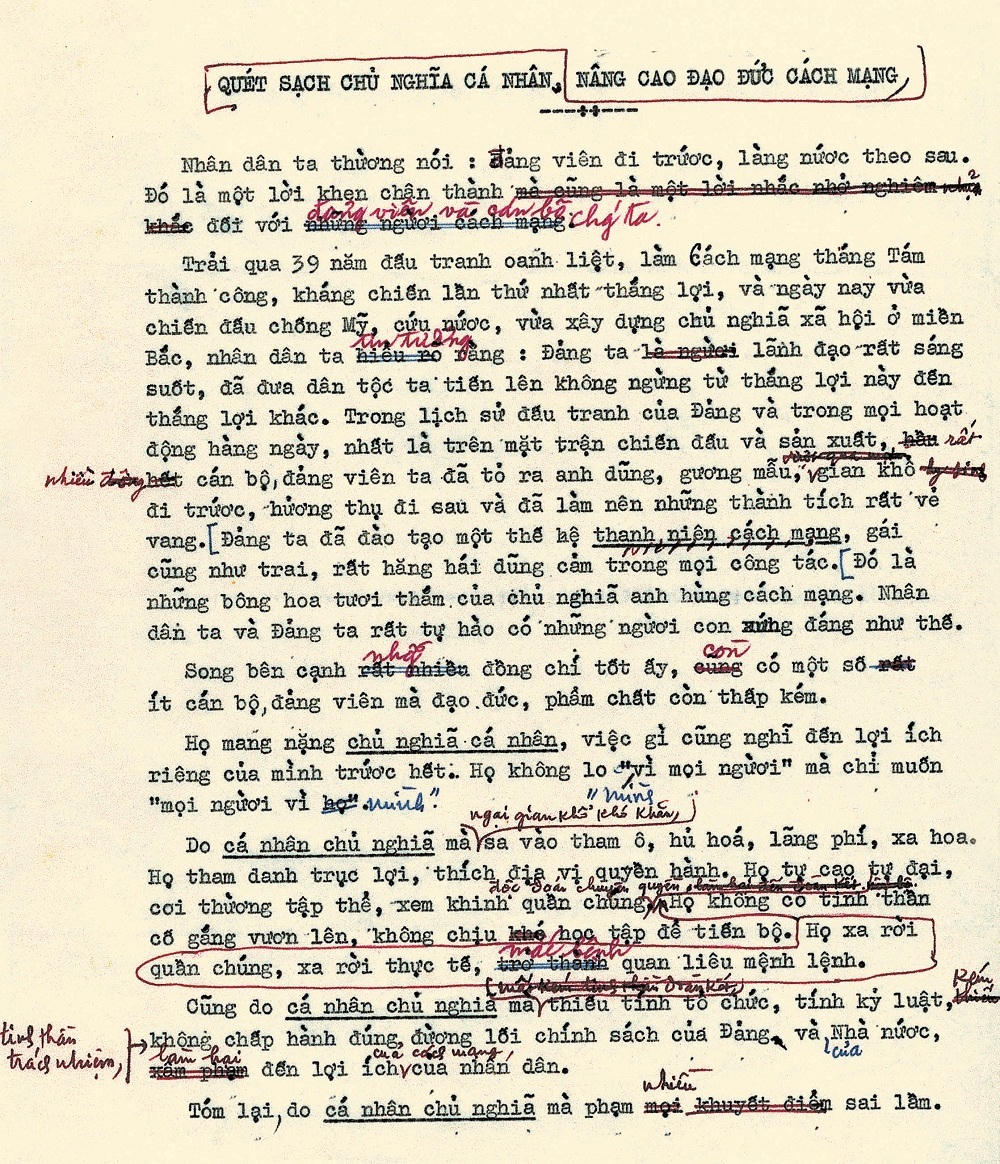 QUÉT SẠCH CHỦ NGHĨA CÁ NHÂN, NÂNG CAO ĐẠO ĐỨC CÁCH MẠNG
Nhân dân ta thường nói : Đảng viên đi trước, làng nước theo sau.
Đó là một lời khen chân thành mà cũng là một lời nhắc nhở nghiêm
đảng viên và cán bộ chg' ta.
khắc đối với những người cách mạng.
Trải qua 39 năm đấu tranh oanh liệt, làm Cách mạng tháng Tám
thành công, kháng chiến lần thứ nhất thắng lợi, và ngày nay vừa
chiến đấu chống Mỹ, cứu nước, vừa xây dựng chủ nghiã xã hội ở miền
tin tưởng
Bắc, nhân dân ta hiểu rõ rằng : Đảng ta là người lãnh đạo rất sáng
suốt, đã đưa dân tộc ta tiến lên không ngừng từ thắng lợi này đến
thắng lợi khác. Trong lịch sử đấu tranh của Đảng và trong mọi hoạt
động hàng ngày, nhất là trên mặt trận chiến đấu và sản xuất, hầu rất
nhiều đông hết cán bộ, đảng viên ta đã tỏ ra anh dũng, gương mẫu, gian khổ
đi trước, hưởng thụ đi sau và đã làm nên những thành tích rất vẻ
vang. [Đảng ta đã đào tạo một thế hệ thanh niên cách mạng, gái
cũng như trai, rất hăng hái dũng cảm trong mọi công tác. [Đó là
những bông hoa tươi thắm của chủ nghiã anh hùng cách mạng. Nhân
dân ta và Đảng ta rất tự hào có những người con xứng đáng như thế.
những còn
Song bên cạnh rất nhiều đồng chí tốt ấy, cũng có một số rất
ít cán bộ, đảng viên mà đạo đức, phẩm chất còn thấp kém.
Họ mang nặng chủ nghiã cá nhân, việc gì cũng nghĩ đến lợi ích
riêng của mình trước hết. Họ không lo "vì mọi người" mà chỉ muốn
"mọi người vì họ". mình". "mình
ngại gian khổ khó khăn,
Do cá nhân chủ nghiã mà sa vào tham ô, hủ hoá, lãng phí, xa hoa.
Họ tham danh trục lợi, thích địa vị quyền hành. Họ tự cao tự đại,
độc đoán chuyên quyền,
coi thường tập thể, xem khinh quần chúng. Họ không có tinh thần
cố gắng vươn lên, không chịu khó học tập để tiến bộ. Họ xa rời
mắc bệnh
quần chúng, xa rời thực tế, trở thành quan liêu mệnh lệnh.
mất tinh thần đoàn kết,
Cũng do cá nhân chủ nghiã mà thiếu tính tổ chức, tính kỷ luật, kém
tinh thần trách nhiệm,
không chấp hành đúng đường lối chính sách của Đảng và Nhà nước,
của
làm hại của cách mạng,
xâm phạm đến lợi ích của nhân dân.
nhiều
Tóm lại, do cá nhân chủ nghiã mà phạm mọi khuyết điểm sai lầm.